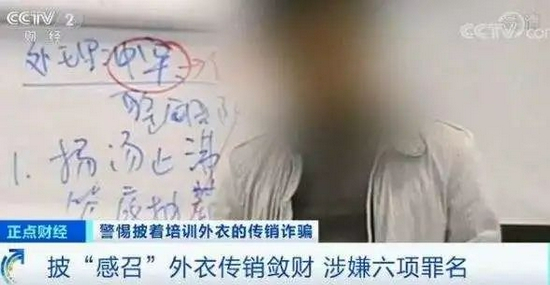 CCTV 2
财经
CCTV.com
处理
1. 扬汤止沸
釜底抽薪
正点财经 警惕披着培训外衣的传销诈骗
披“感召”外衣传销敛财 涉嫌六项罪名